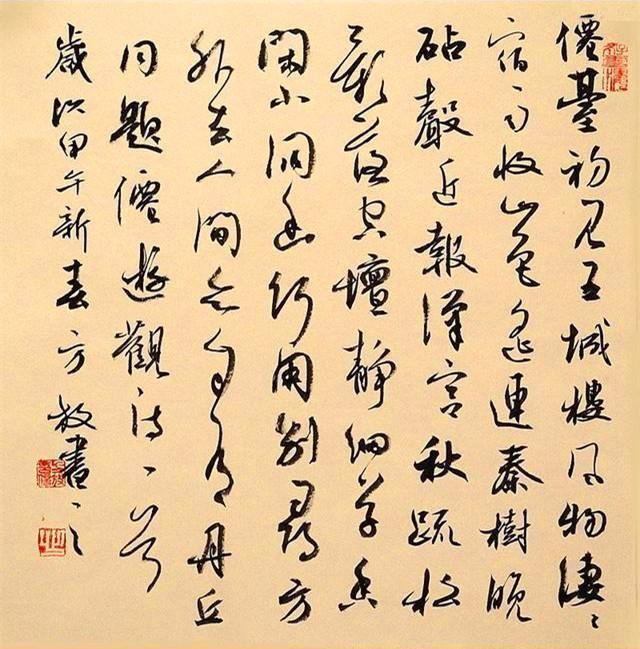 僊臺初見五城樓風物淒〻
宿雨收山色遙連秦樹晚
砧聲近報漢宮秋疏松
影落空壇靜細草香
閑小洞幽何用別尋方
外去人間亦自有丹丘
同題僊遊觀詩一首
歲次甲午新春方放書之